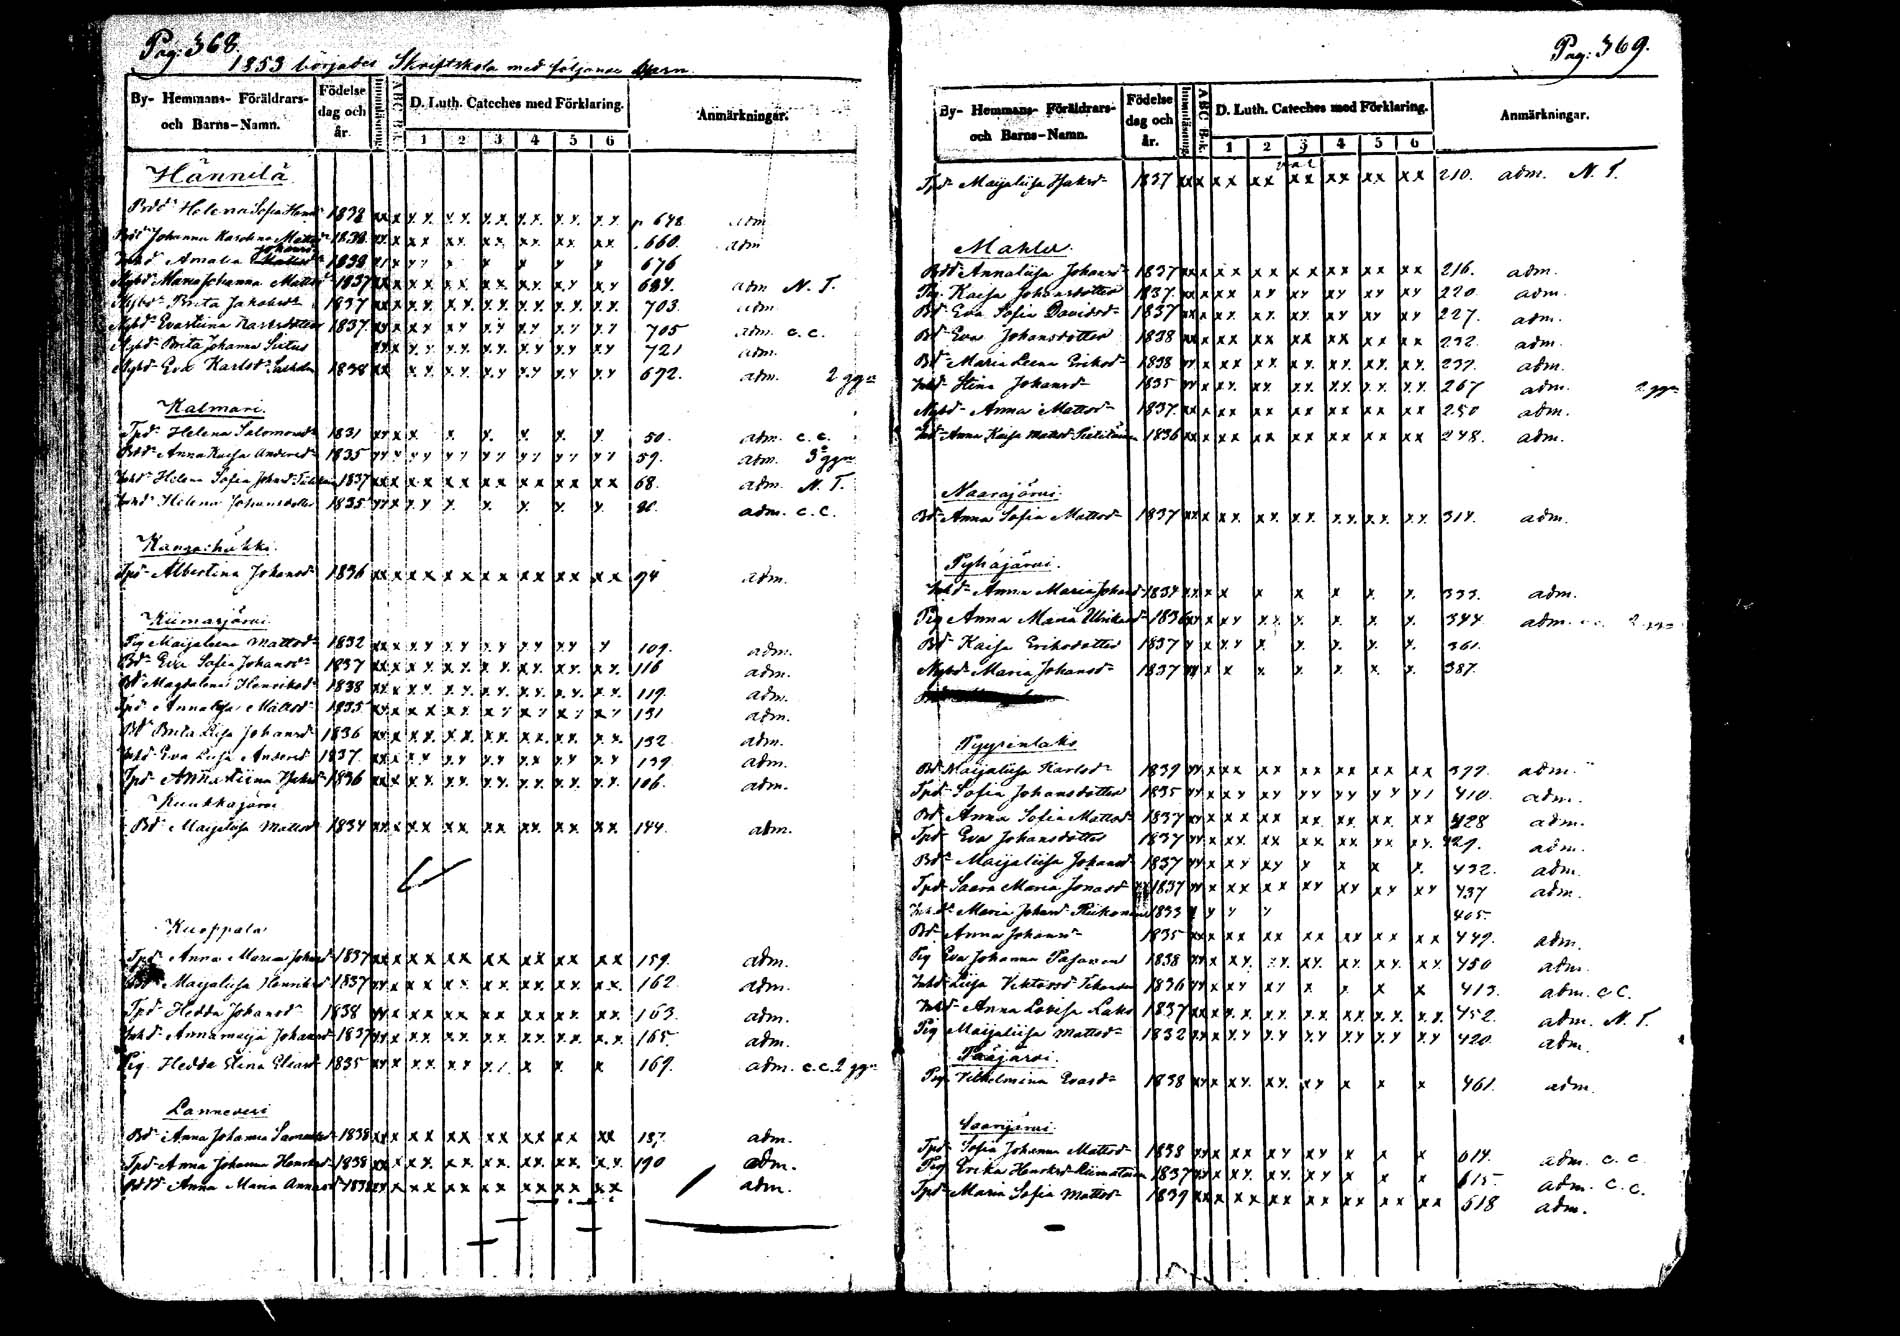 Pag: 368.
1853 börjades Skriftskola med följande Barn
By- Hemmans- Föräldrars- och Barns-Namn. Födelse dag och år. Innanläsning. A B C Bok. D. Luth. Cateches med Förklaring. Anmärkningar.
1 2 3 4 5 6
Hännilä
Helena Sofia 1838 xx x xx xx xx xx xx xx p 648 adm
Johanna Karolina 1838 xx x xx xx xx xx xx xx 660. adm
Inhd Amalia Johansd 1838 x x x x x x 676
Nybd Maria Johanna Mattsd 1837 xx x xx xx xx xx xx xx 684. adm N. T.
Nybd Brita Jakobsd 1837 xx x xx xx xx xx xx xx 703. adm
Nybd Evastiina Karlsdotter 1837 xx x xx xx xx xx xx xx 705 adm. c. c.
Nybd Brita Johanna Sixtus xx x xx xx xx xx xx xx 721 adm.
Nybd Eva Karlsd 1838 xx xx xx xx xx xx xx 692. adm. 2 ggr
Kalmari.
Tpd Helena Salomonsd 1831 xx x x x. x. x. x. x. 50. adm. c. c.
Anna Kaisa Andersd 1835 xx x xx xx xx xx xx xx 59. adm. 3 ggr
Inhd Helena Sofia Johsd 1837 xx x xx xx xx xx xx xx 68. adm. N. T.
Inhd Helena Johansdotter 1835 xx x xx x. x. x. x. x. adm. c. c.
Kangashäkki.
Tpd Albertina Johansd 1836 xx x xx xx xx xx xx xx 94 adm.
Kiimasjärvi
Pig Maijaleena Mattsd 1832 xx x xx xx xx xx xx x 109. adm.
Bd Eva Sofia Johansd 1837 xx x xx xx xx xx xx xx 116 adm.
Bd Magdalena Henriksd 1838 xx x xx xx xx xx xx xx 119. adm.
Tpd Annaliisa Mattsd 1835 xx x xx xx xx xx xx xx 131 adm.
Bd Brita Liisa Johansd 1836 xx x xx xx xx xx xx xx 132. adm.
Inhd Eva Liisa Andersd 1837. xx x xx xx xx xx xx xx 139. adm.
Tpd Annastiina Isaksd 1836 xx x xx xx xx xx xx xx 106. adm.
Kuukkajärvi
Bd Maijaliisa Mattsd 1834 xx x xx xx xx xx xx xx 144. adm.
Kuoppala
Tpd Anna Maria Johansd 1837 xx x xx xx xx xx xx xx 159. adm.
Bd Maijaliisa Henriksd 1837 xx x xx xx xx xx xx xx 162. adm.
Tpd Hedda Johansd 1838 xx x xx xx xx xx xx xx 163. adm.
Inhd Annamaija Johansd 1837 xx x xx xx xx xx xx xx 165. adm.
Pig Hedda Stina Eliasd 1835 xx x xx xx x x x x 169. adm. c. c. 2 ggr
Lannevesi
Bd Anna Johanna 1838 xx x xx xx xx xx xx xx 187. adm.
Tpd Anna Johanna Henriksd 1838 xx x xx xx xx xx xx xx 190 adm.
Anna Maria 1838 xx x xx xx xx xx xx xx adm.
Pag: 369.
By- Hemmans- Föräldrars- och Barns-Namn. Födelse dag och år. Innanläsning. A B C Bok. D. Luth. Cateches med Förklaring. Anmärkningar.
1 2 3 4 5 6
Tpd Maijaliisa Isaksd 1837 xx x xx xx xx xx xx xx 210. adm. N. T.
Mahlu.
Annaliisa Johansd 1837 xx x xx xx xx xx xx xx 216. adm.
Pig. Kaisa Johansdotter 1837. xx x xx xx xx xx xx xx 220. adm.
Bd Eva Sofia Davidsd 1837 xx x xx xx xx xx xx xx 227. adm.
Bd Eva Johansdotter 1838 xx x xx xx xx xx xx xx 232. adm.
Bd Maria Leena Eriksd 1838 xx x xx xx xx xx xx xx 237. adm.
Inhd Stina Johansd 1835 xx x xx xx xx xx xx xx 267 adm. 2 ggr
Nybd Anna Mattsd 1837. xx x xx xx xx xx xx xx 250 adm.
Inhd Anna Kaisa Mattsd 1836 xx x xx xx xx xx xx xx 248. adm.
Naarajärvi
Bd Anna Sofia Mattsd 1837 xx x xx xx xx xx xx xx 314. adm.
Pyhäjärvi.
Inhd Anna Maria Johansd 1834 xx x x x x x x x. 333. adm.
Pig Anna Maria Ulriksd 1836 xx x xx xx x. x. x. x. 344 adm.
Bd Kaisa Eriksdotter 1837 x x xx x x. x. x. x. 361.
Nybd Maria Johansd 1837 xx x x x. x. x. x. x. 387.
Pyyrinlaks
Bd Maijaliisa Karlsd 1839 xx x xx xx xx xx xx xx 399. adm.
Tpd Sofia Johansdotter 1835 xx x xx xx xx xx xx xx 410. adm.
Bd Anna Sofia Mattsd 1837 xx x xx xx xx xx xx xx 428 adm.
Tpd Eva Johansdotter 1837 xx x xx xx xx xx xx xx. 429. adm.
Bd Maijaliisa Johansd 1837 xx x xx xx x x x x. 432. adm.
Tpd Saara Maria Jonasd 1837 xx x xx xx xx xx xx xx 437 adm.
Inhd Maria Johansd Riikonen 1833 x x x x 405.
Bd Anna Johansd 1835 xx x xx xx xx xx xx xx 449. adm.
Pig Eva Johanna Pasanen 1838 xx x xx xx xx xx xx xx 450 adm.
Inhd Liisa Viktorsd 1836 xx x xx xx x x x x 413. adm. c. c.
Inhd Anna Lovisa Laks 1837 xx x xx xx xx xx xx xx 452. adm. N. T.
Pig Maijaliisa Mattsd 1832 xx x xx xx xx xx xx xx 420. adm.
Pääjärvi.
Pig Vilhelmina Evasd 1838 xx x xx xx xx x x x 461. adm.
Saarijärvi
Tpd Sofia Johanna Mattsd 1838 xx x xx xx xx x x x 614. adm. c. c.
Pig Erika Henriksd 1837 xx x xx xx xx x x x 615. adm. c. c.
Tpd Maria Sofia Mattsd 1839 xx x xx xx xx xx xx xx 618 adm.